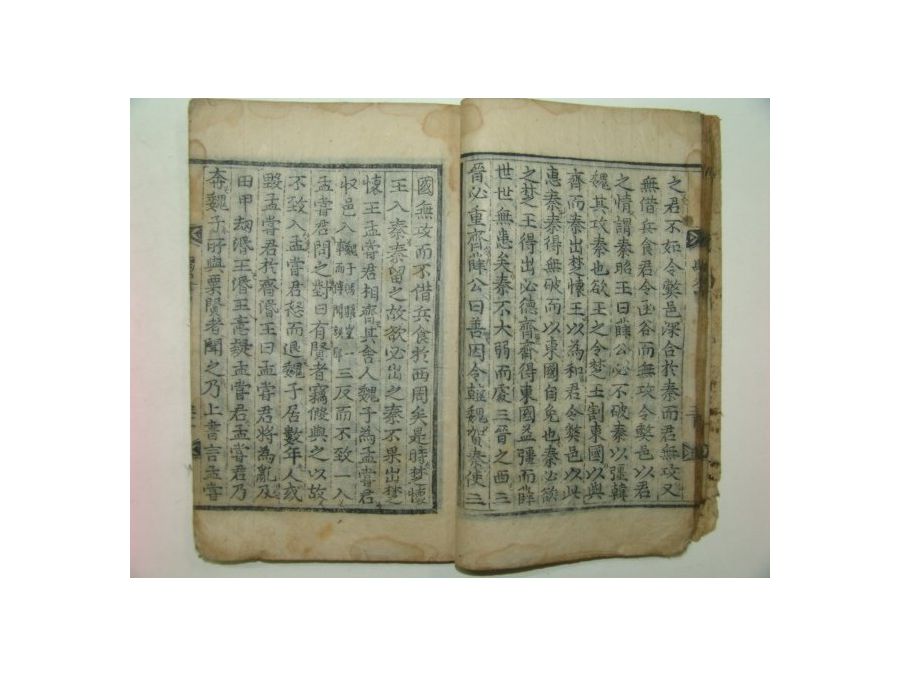 之君不如令弊邑深合於秦而君無攻又
無借兵食君令函谷而無攻令弊邑以君
之情謂秦昭王曰薛公必不破秦以彊韓
魏其攻秦也欲王之令楚王割東國以與
齊而秦出楚懷王以為和君令弊邑以此
惠秦秦得無破而以東國自免也秦必欲
之楚王得出必德齊齊得東國益彊而薛
世世無患矣秦不大弱而處三晉之西三
晉必重齊薛公曰善因令韓魏賀秦使三
國無攻而不借兵食於西周矣是時楚懷
王入秦秦留之故欲必出之秦不果出楚
懷王孟嘗君相齊其舍人魏子為孟嘗君
収邑入三反而不致一入
孟嘗君問之對曰有賢者竊假與之以故
不致入孟嘗君怒而退魏子居數年人或
毀孟嘗君於齊湣王曰孟嘗君將為亂及
田甲劫湣王湣王意疑孟嘗君孟嘗君乃
奔魏子所與粟賢者聞之乃上書言孟嘗